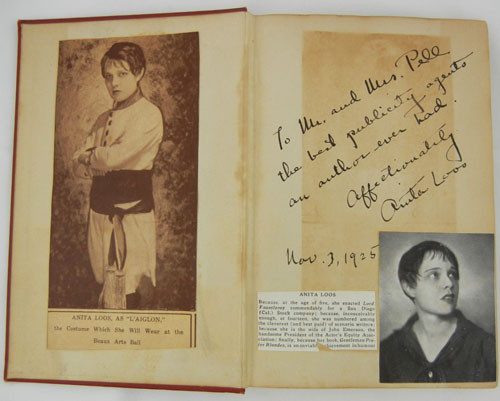 ANITA LOOS, AS "L'AIGLON,"
the Costume Which She Will Wear at the
Beaux Arts Ball
To Mr. and Mrs. Pell
the best publicity agents
an author ever had.
Affectionately
Anita Loos
Nov. 3, 1925
ANITA LOOS
Because, at the age of five, she enacted Lord
Fauntleroy commendably for a San Diego
(Cal.) Stock company; because, inconceivably
enough, at fourteen, she was numbered among
the cleverest (and best paid) of scenario writers;
because she is the wife of John Emerson, the
handsome President of the Actor's Equity Asso-
ciation; finally, because her book, Gentlemen Pre-
fer Blondes, is an enviable achievement in humour